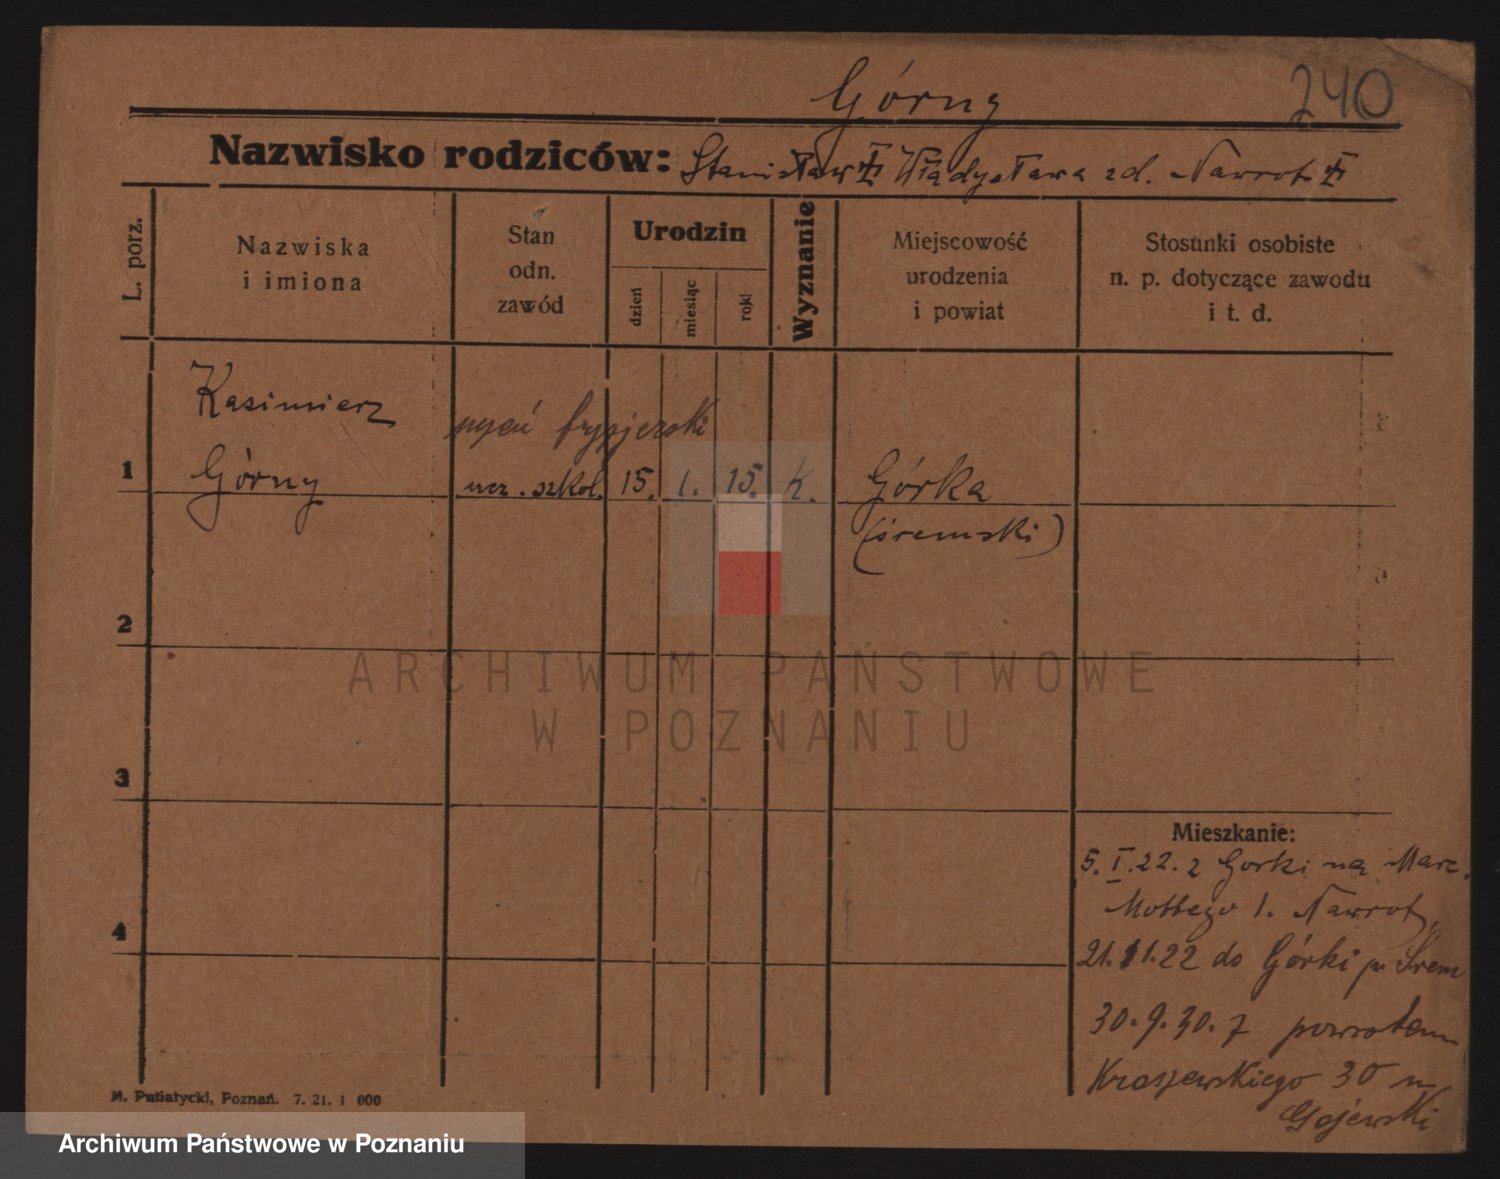 Górny
240
Nazwisko rodziców: Stanisław Władysława zd. Nawrot
L. porz.
Nazwiska
i imiona
Stan
odn.
zawód
Urodzin
dzień
miesiąc
rok
Wyznanie
Miejscowość
urodzenia
i powiat
Stosunki osobiste
n. p. dotyczące zawodu
i t. d.
Kasimierz
uczń fryzjerski
1 Górny ucz. szkol. 15. 1. 15. K. Górka
(śremski)
2
ARCHIWUM PAŃSTWOWE
W POZNANIU
3
Mieszkanie:
5. I. 22. z Gorki na Marc.
Mottego 1. Nawrot,
4
21.11.22 do Górki Śrem
30.9.30. powrotem
Kraszewskiego 30
Gojewski
M. Putiatycki, Poznań. 7. 21. 1 000
Archiwum Państwowe w Poznaniu